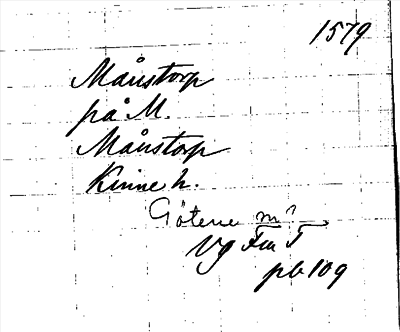 1579
Månstorp
på M.
Månstorp
Kinne h.
Götene m?
Vg Fm T
pb 109